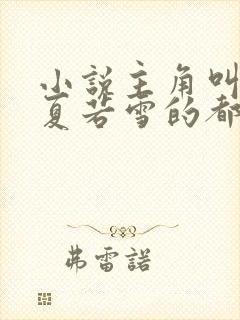 小说主角叫
夏若雪的都
弗雷諾